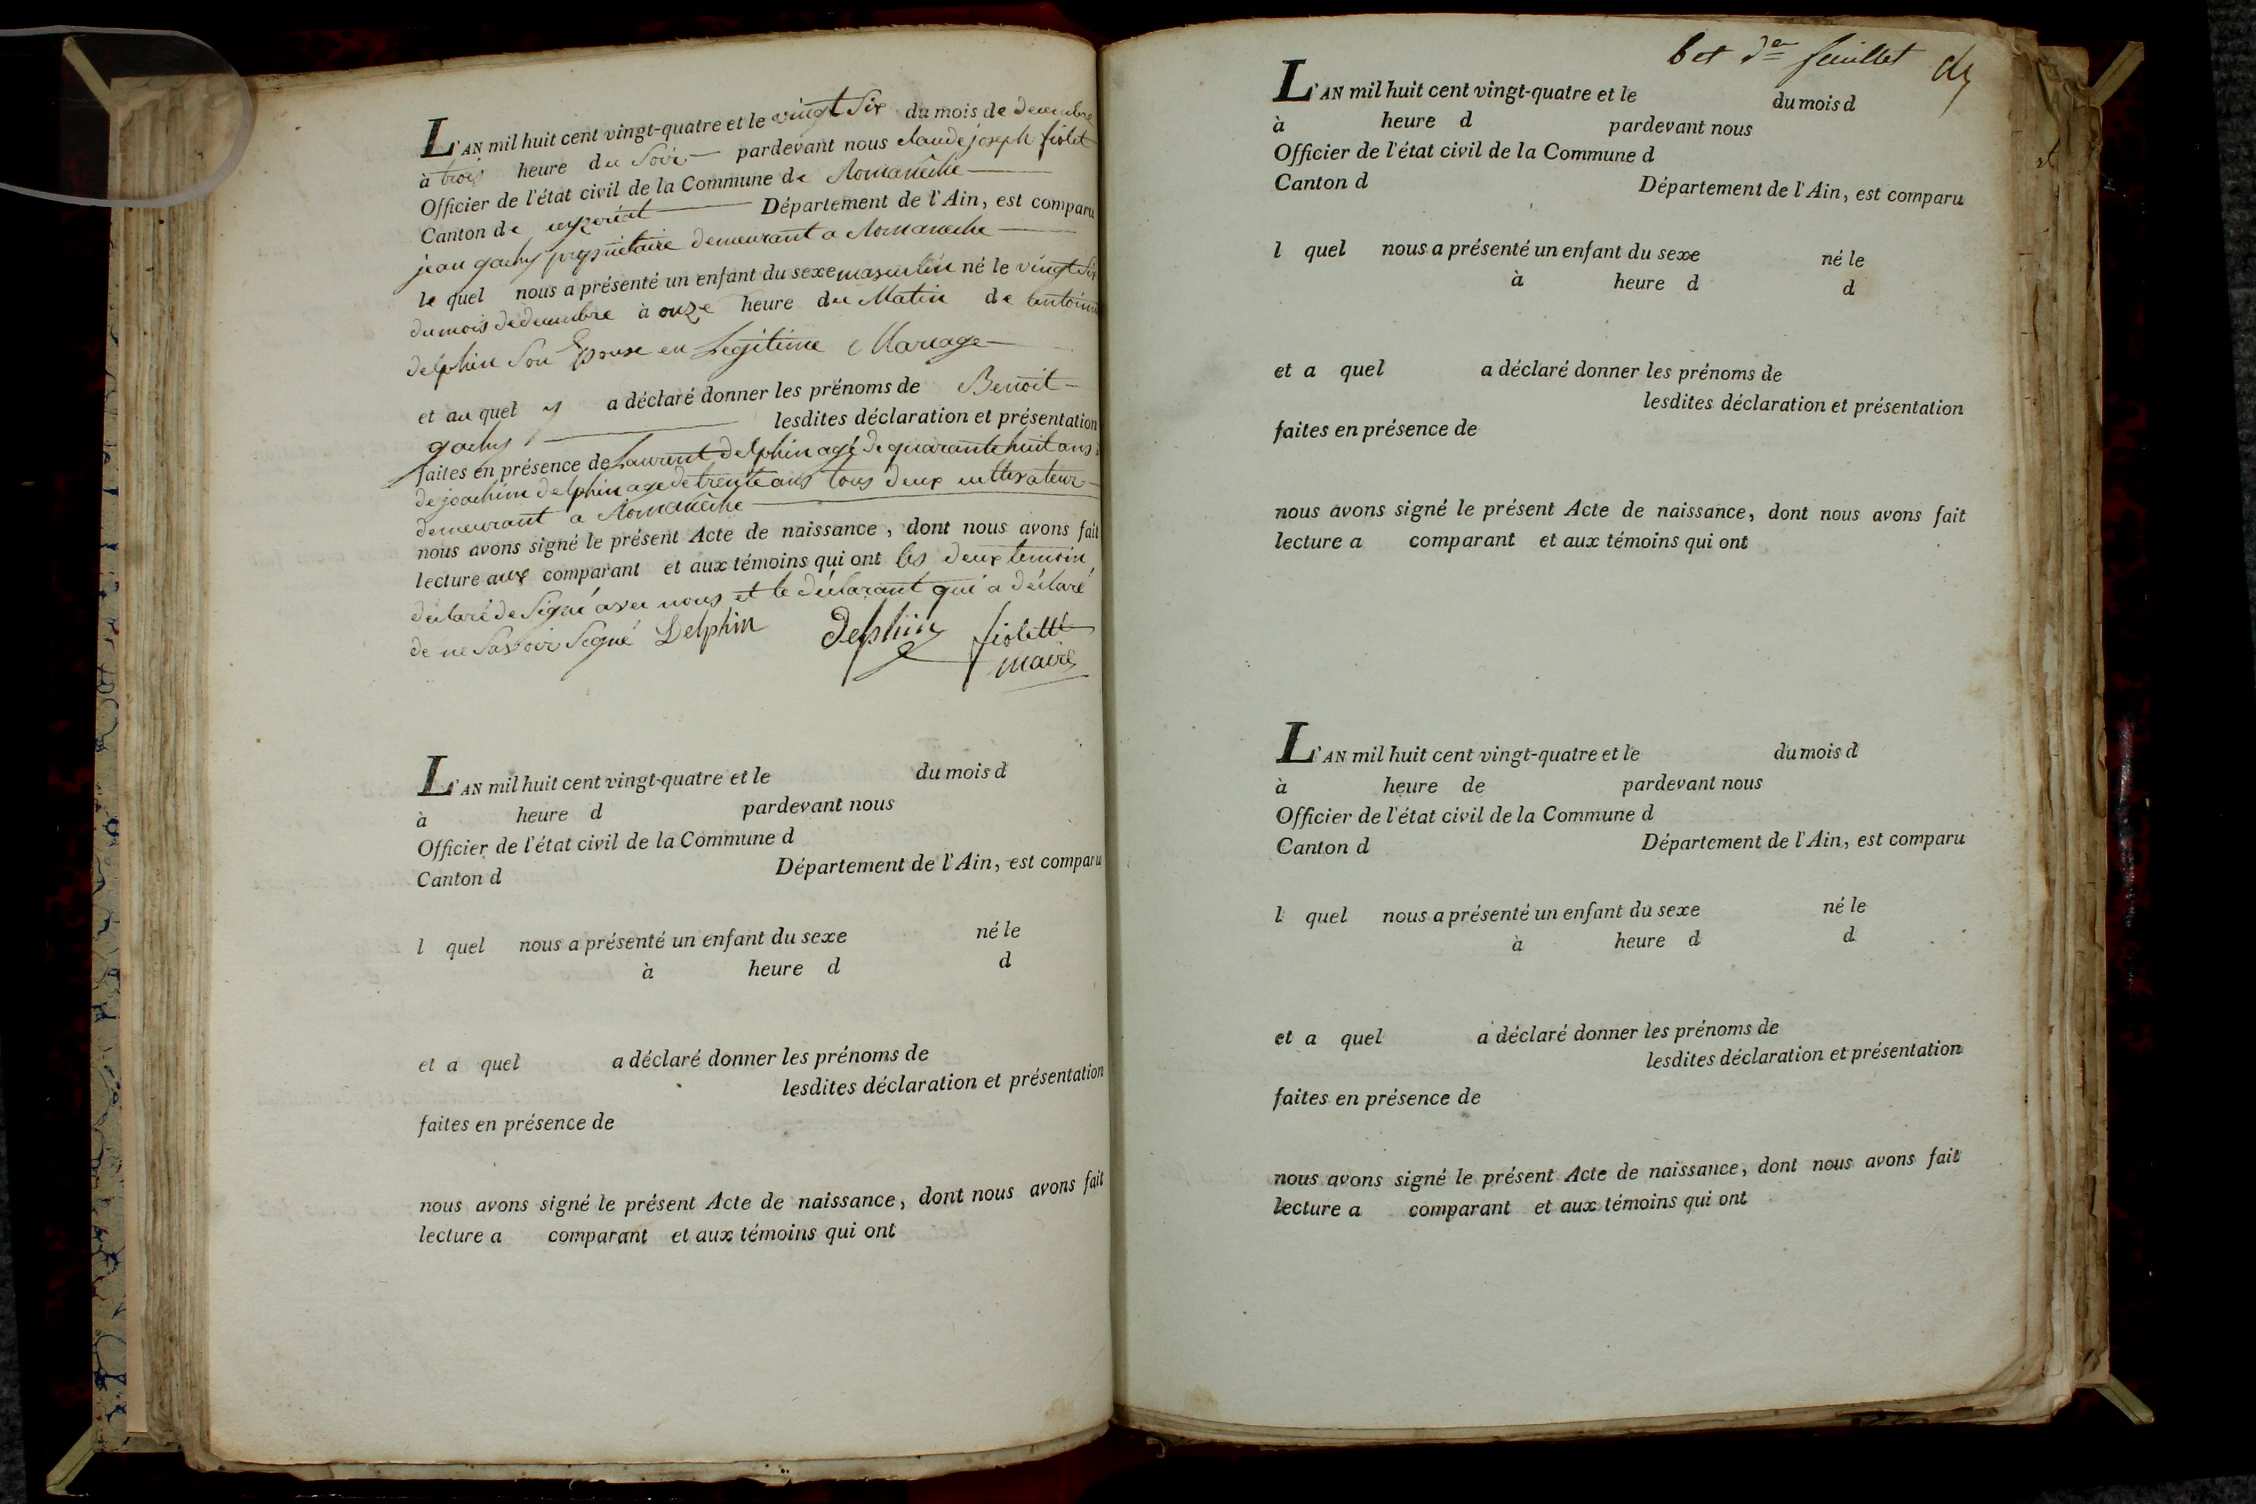 L'AN mil huit cent vingt-quatre et le vingt six du mois de decembre
à trois heure du Soir pardevant nous claude joseph fiolet
Officier de l'état civil de la Commune de Romanêche
Canton de ceyzeriat Département de l'Ain, est comparu
jean gachy propriétaire demeurant a Romaneche
le quel nous a présenté un enfant du sexe masculin né le vingt six
du mois de decembre à onze heure du Matin de antoinette
delphin Son Epouse en Legitime Mariage
et au quel y a déclaré donner les prénoms de Benoit
gachy lesdites déclaration et présentation
faites en présence de Laurent delphin agé de quarante huit ans
de joachim delphin age de trente ans tous deux cultivateur
demeurant a Romanêche
nous avons signé le présent Acte de naissance, dont nous avons fait
lecture aux comparant et aux témoins qui ont les deux temoin
déclaré de Signé avec nous et le déclarant qui a déclaré
de ne Savoir Signé Delphin delphin fiolette
maire
L'AN mil huit cent vingt-quatre et le du mois d
à heure d pardevant nous
Officier de l'état civil de la Commune d
Canton d Département de l'Ain, est comparu
l quel nous a présenté un enfant du sexe né le
à heure d d
et a quel a déclaré donner les prénoms de
lesdites déclaration et présentation
faites en présence de
nous avons signé le présent Acte de naissance, dont nous avons fait
lecture a comparant et aux témoins qui ont
6 et der feuillet
L'AN mil huit cent vingt-quatre et le du mois d
à heure d pardevant nous
Officier de l'état civil de la Commune d
Canton d Département de l'Ain, est comparu
l quel nous a présenté un enfant du sexe né le
à heure d d
et a quel a déclaré donner les prénoms de
lesdites déclaration et présentation
faites en présence de
nous avons signé le présent Acte de naissance, dont nous avons fait
lecture a comparant et aux témoins qui ont
L'AN mil huit cent vingt-quatre et le du mois d
à heure de pardevant nous
Officier de l'état civil de la Commune d
Canton d Département de l'Ain, est comparu
l quel nous a présenté un enfant du sexe né le
à heure d d
et a quel a déclaré donner les prénoms de
lesdites déclaration et présentation
faites en présence de
nous avons signé le présent Acte de naissance, dont nous avons fait
lecture a comparant et aux témoins qui ont